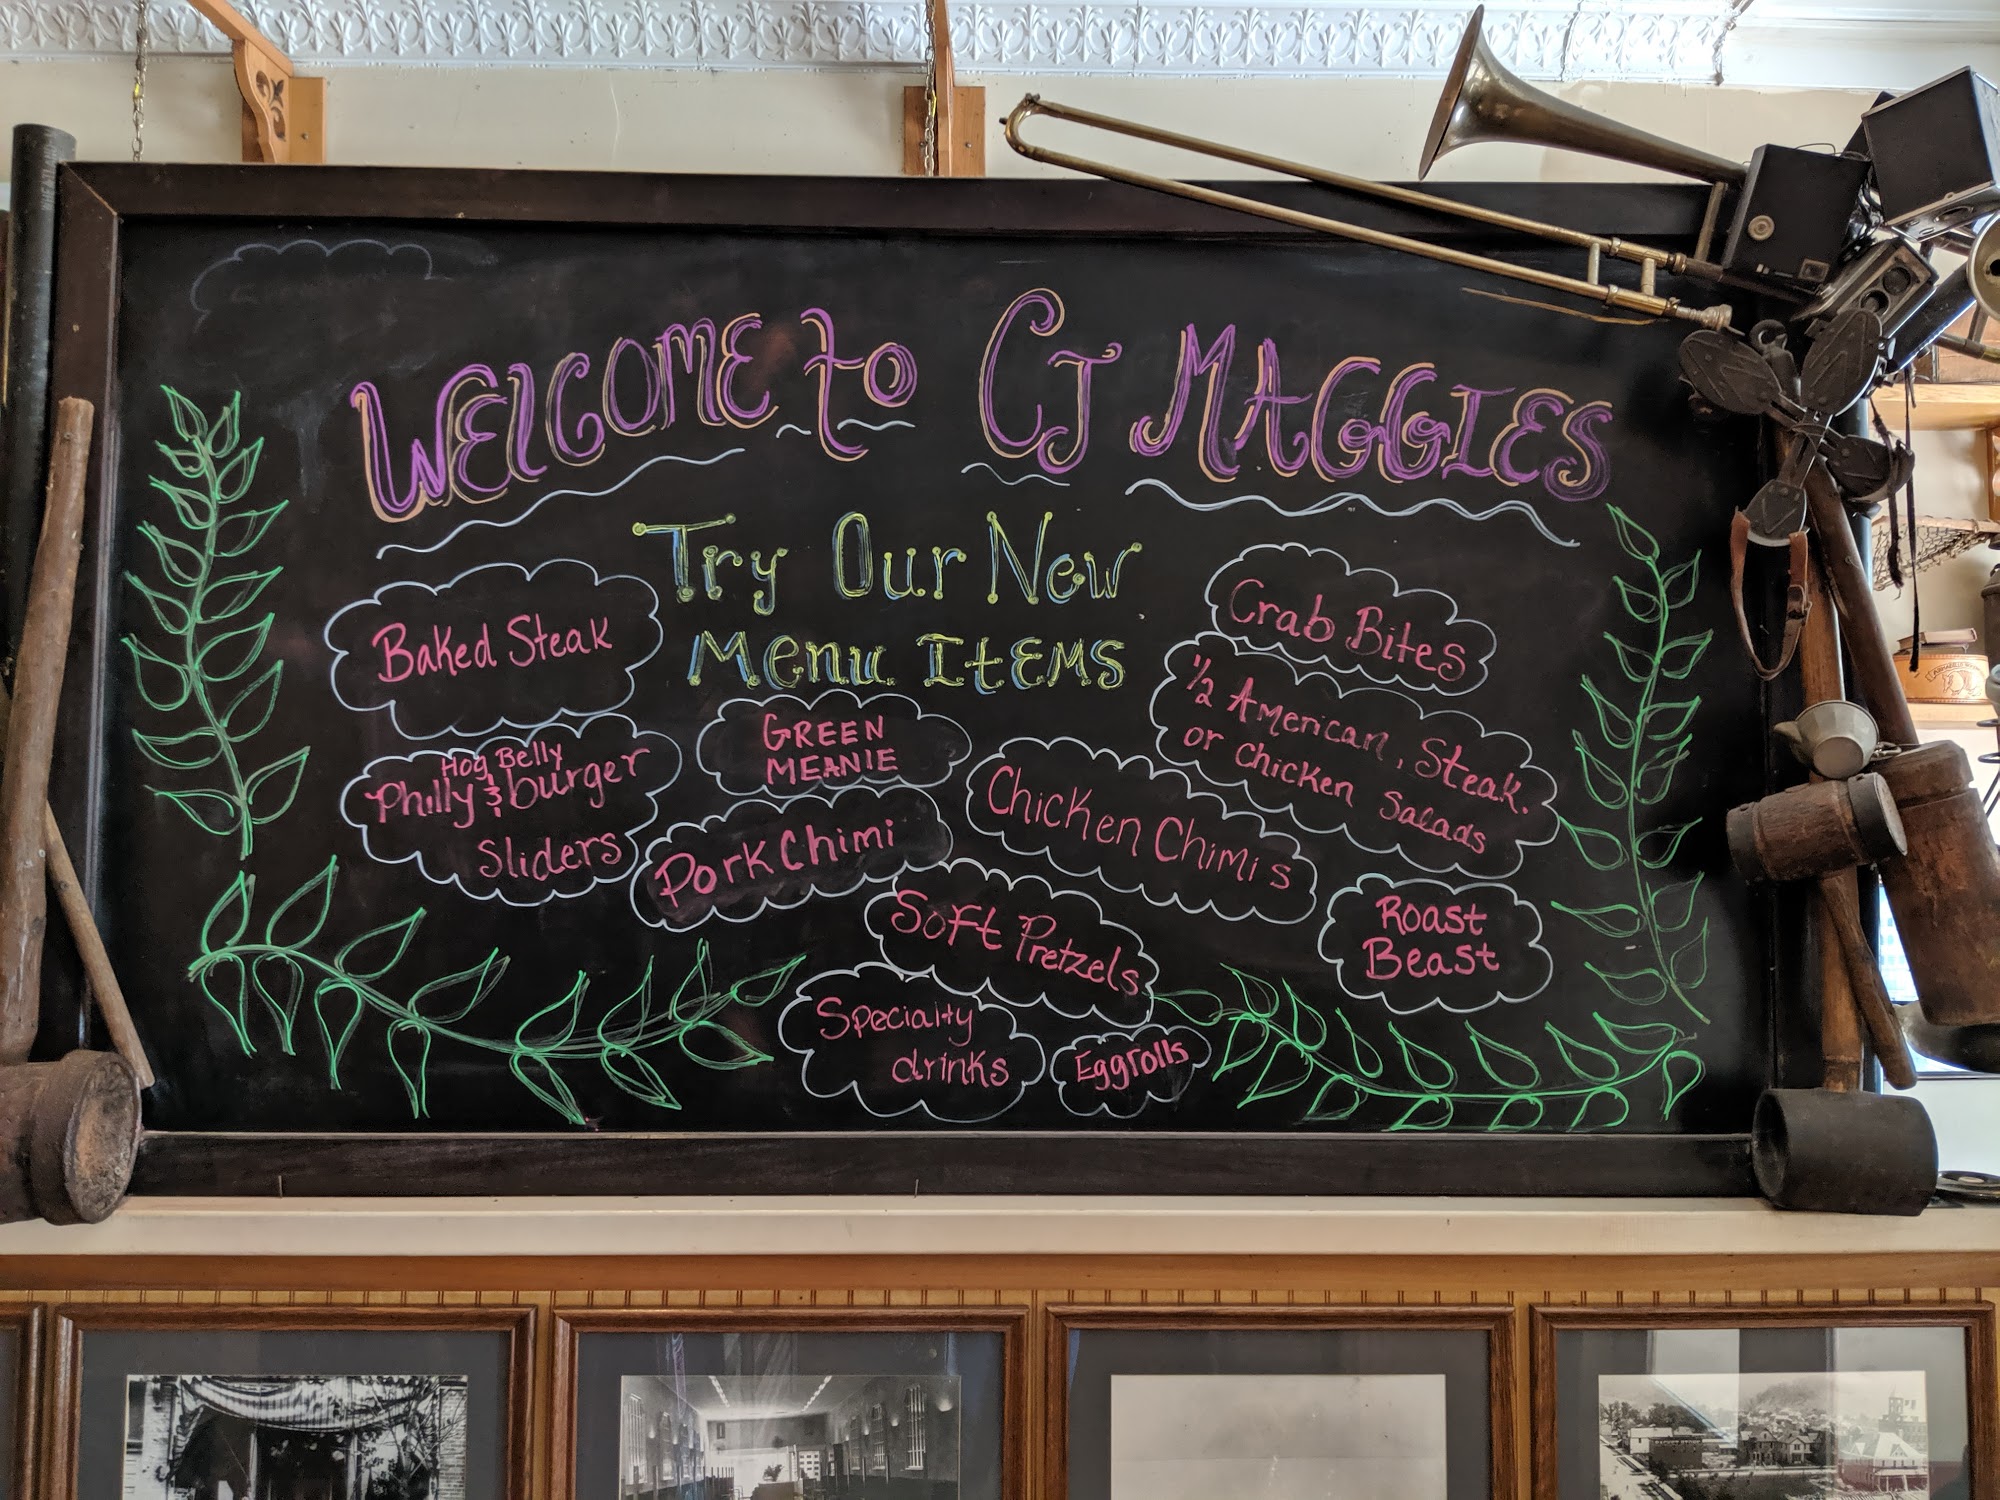 WELCOME to CJ MAGGIES
Try Our New
Menu Items
Baked Steak
Hog Belly
Philly & burger
sliders
GREEN
MEANIE
Pork Chimi
Crab Bites
1/2 American, Steak.
or chicken salads
Chicken Chimi s
Soft Pretzels
Roast
Beast
Specialty
drinks
Eggrolls